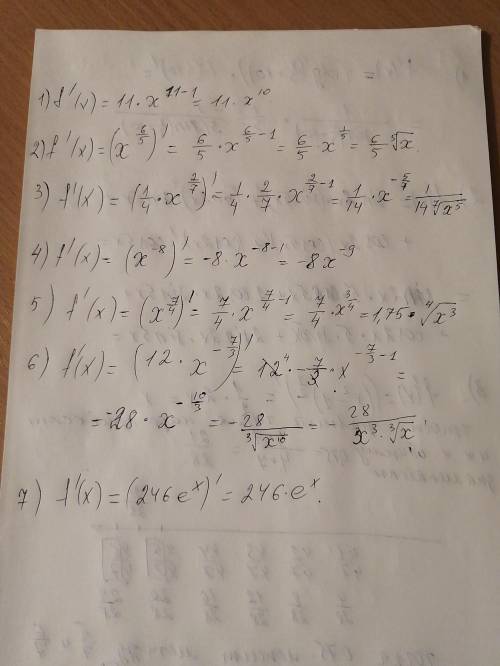 1) f'(x) = 11 · x^(11-1) = 11 · x^10
2) f'(x) = (x^(6/5))' = 6/5 · x^(6/5 - 1) = 6/5 · x^(1/5) = 6/5 ⁵√x
3) f'(x) = (1/4 · x^(2/7))' = 1/4 · 2/7 · x^(2/7 - 1) = 1/14 · x^(-5/7) = 1/(14 ⁷√(x^5))
4) f'(x) = (x^(-8))' = -8 · x^(-8-1) = -8x^(-9)
5) f'(x) = (x^(7/4))' = 7/4 · x^(7/4 - 1) = 7/4 · x^(3/4) = 1,75 · ⁴√(x^3)
6) f'(x) = (12 · x^(-7/3))' = 12^4 · -7/3 · x^(-7/3 - 1) =
= -28 · x^(-10/3) = - 28/(³√(x^10)) = - 28/(x^3 · ³√x)
7) f'(x) = (246 e^x)' = 246 · e^x.